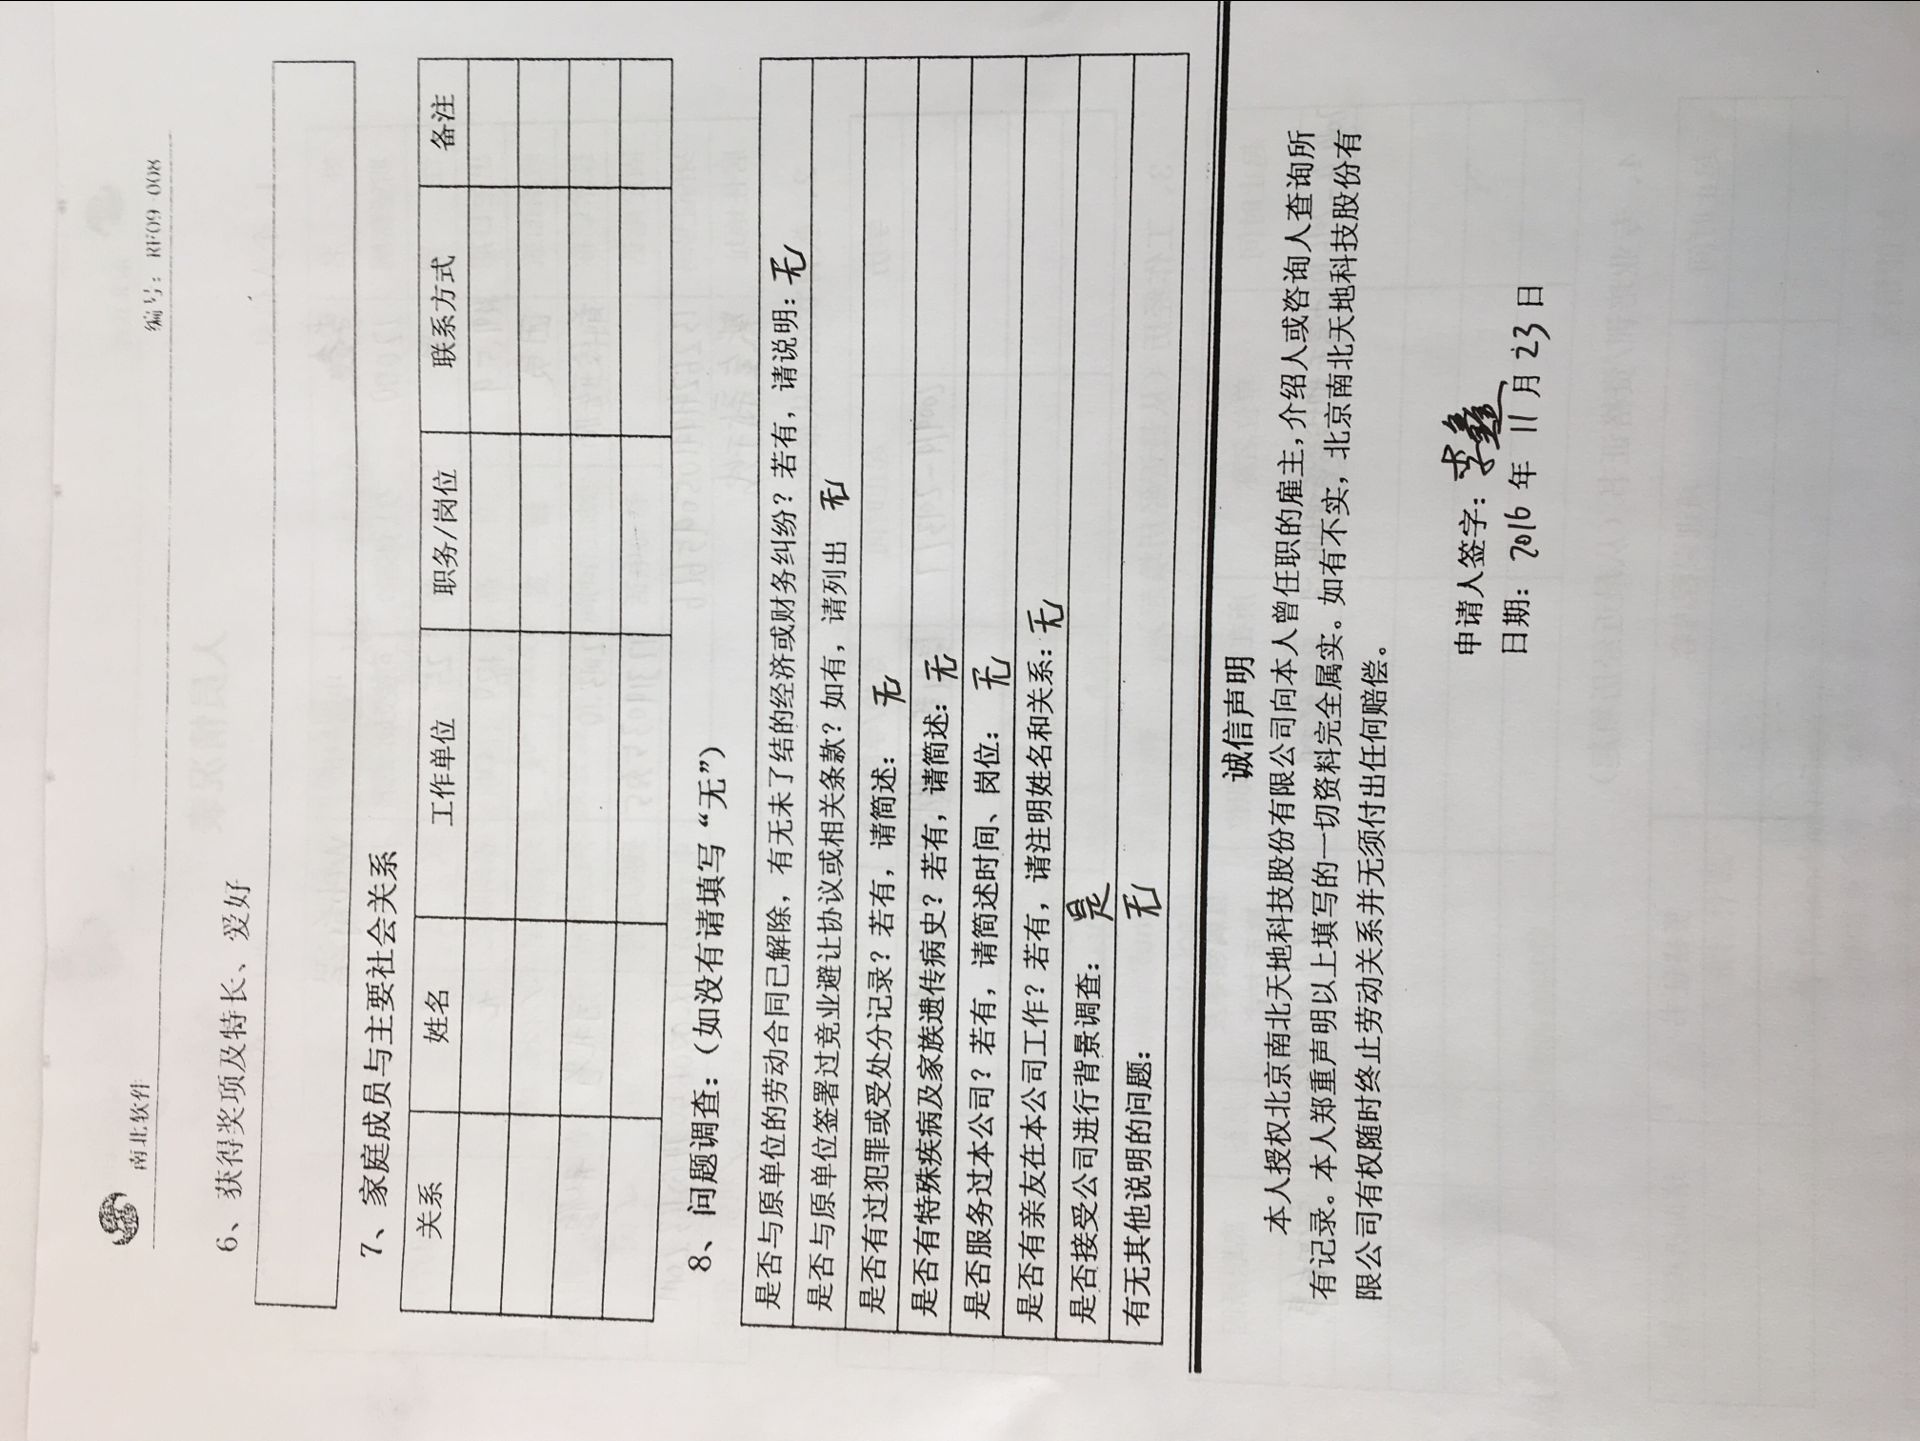 南北软件
编号：RF09-008
6、获得奖项及特长、爱好
7、家庭成员与主要社会关系
关系 姓名 工作单位 职务/岗位 联系方式 备注
8、问题调查：（如没有请填写“无”）
是否与原单位的劳动合同已解除，有无未了结的经济或财务纠纷？若有，请说明：无
是否与原单位签署过竞业避让协议或相关条款？如有，请列出 无
是否有过犯罪或受处分记录？若有，请简述： 无
是否有特殊疾病及家族遗传病史？若有，请简述：无
是否服务过本公司？若有，请简述时间、岗位： 无
是否有亲友在本公司工作？若有，请注明姓名和关系：无
是否接受公司进行背景调查： 是
有无其他说明的问题： 无
诚信声明
本人授权北京南北天地科技股份有限公司向本人曾任职的雇主，介绍人或咨询人查询所
有记录。本人郑重声明以上填写的一切资料完全属实。如有不实，北京南北天地科技股份有
限公司有权随时终止劳动关系并无须付出任何赔偿。
申请人签字：李鑫
日期：2016年11月23日